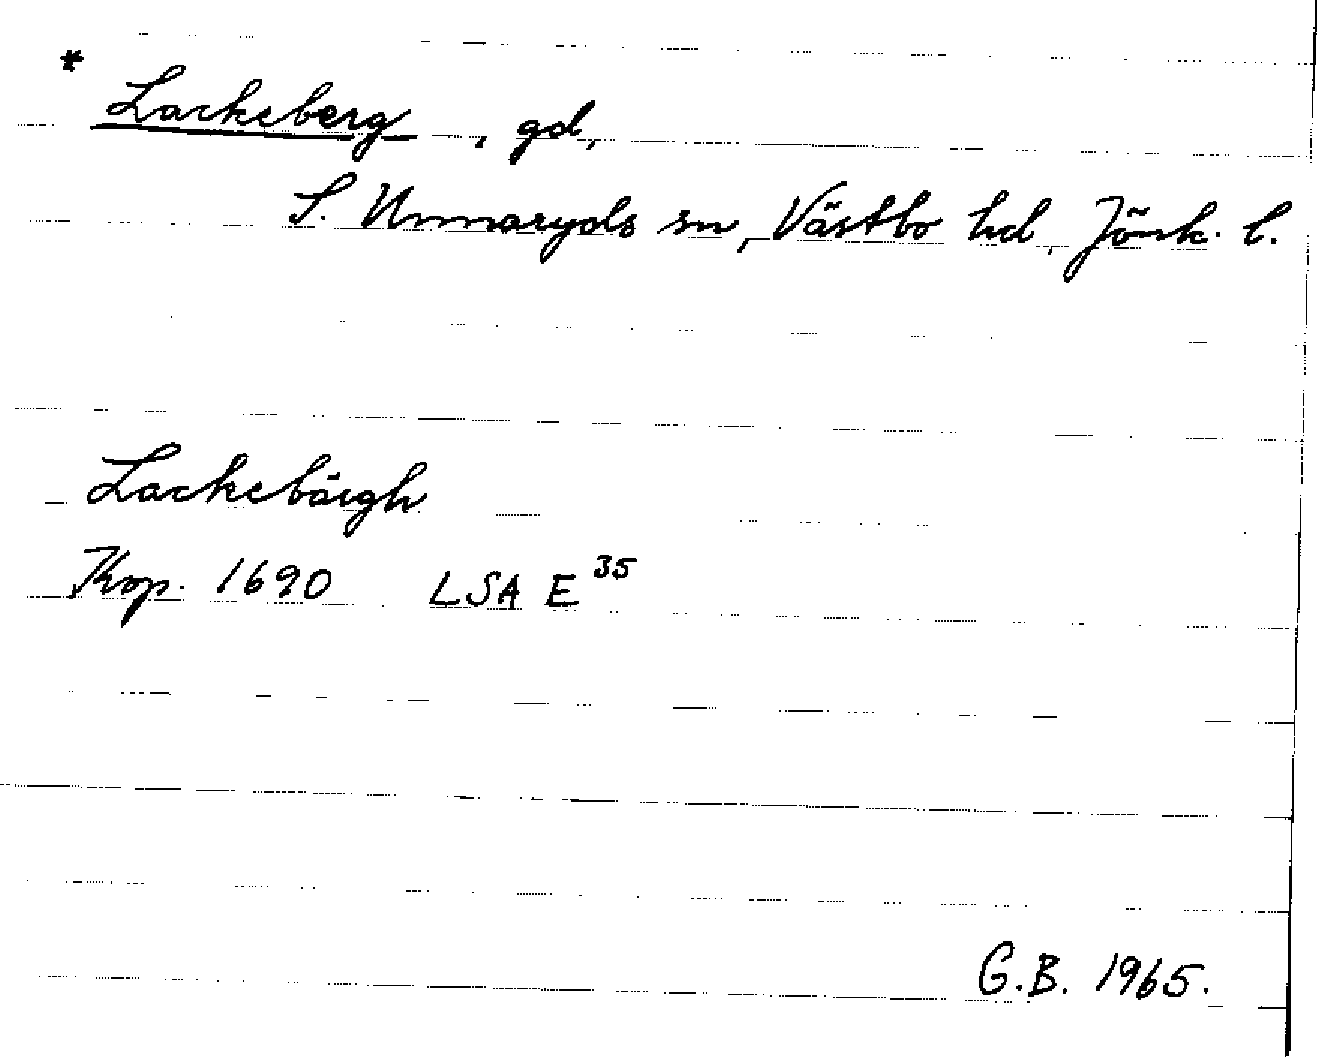 * Lackeberg, gd,
S. Unnaryds sn, Västbo hd, Jönk. l.
Lackebärgh
Kop. 1690 LSA E 35
G.B. 1965.